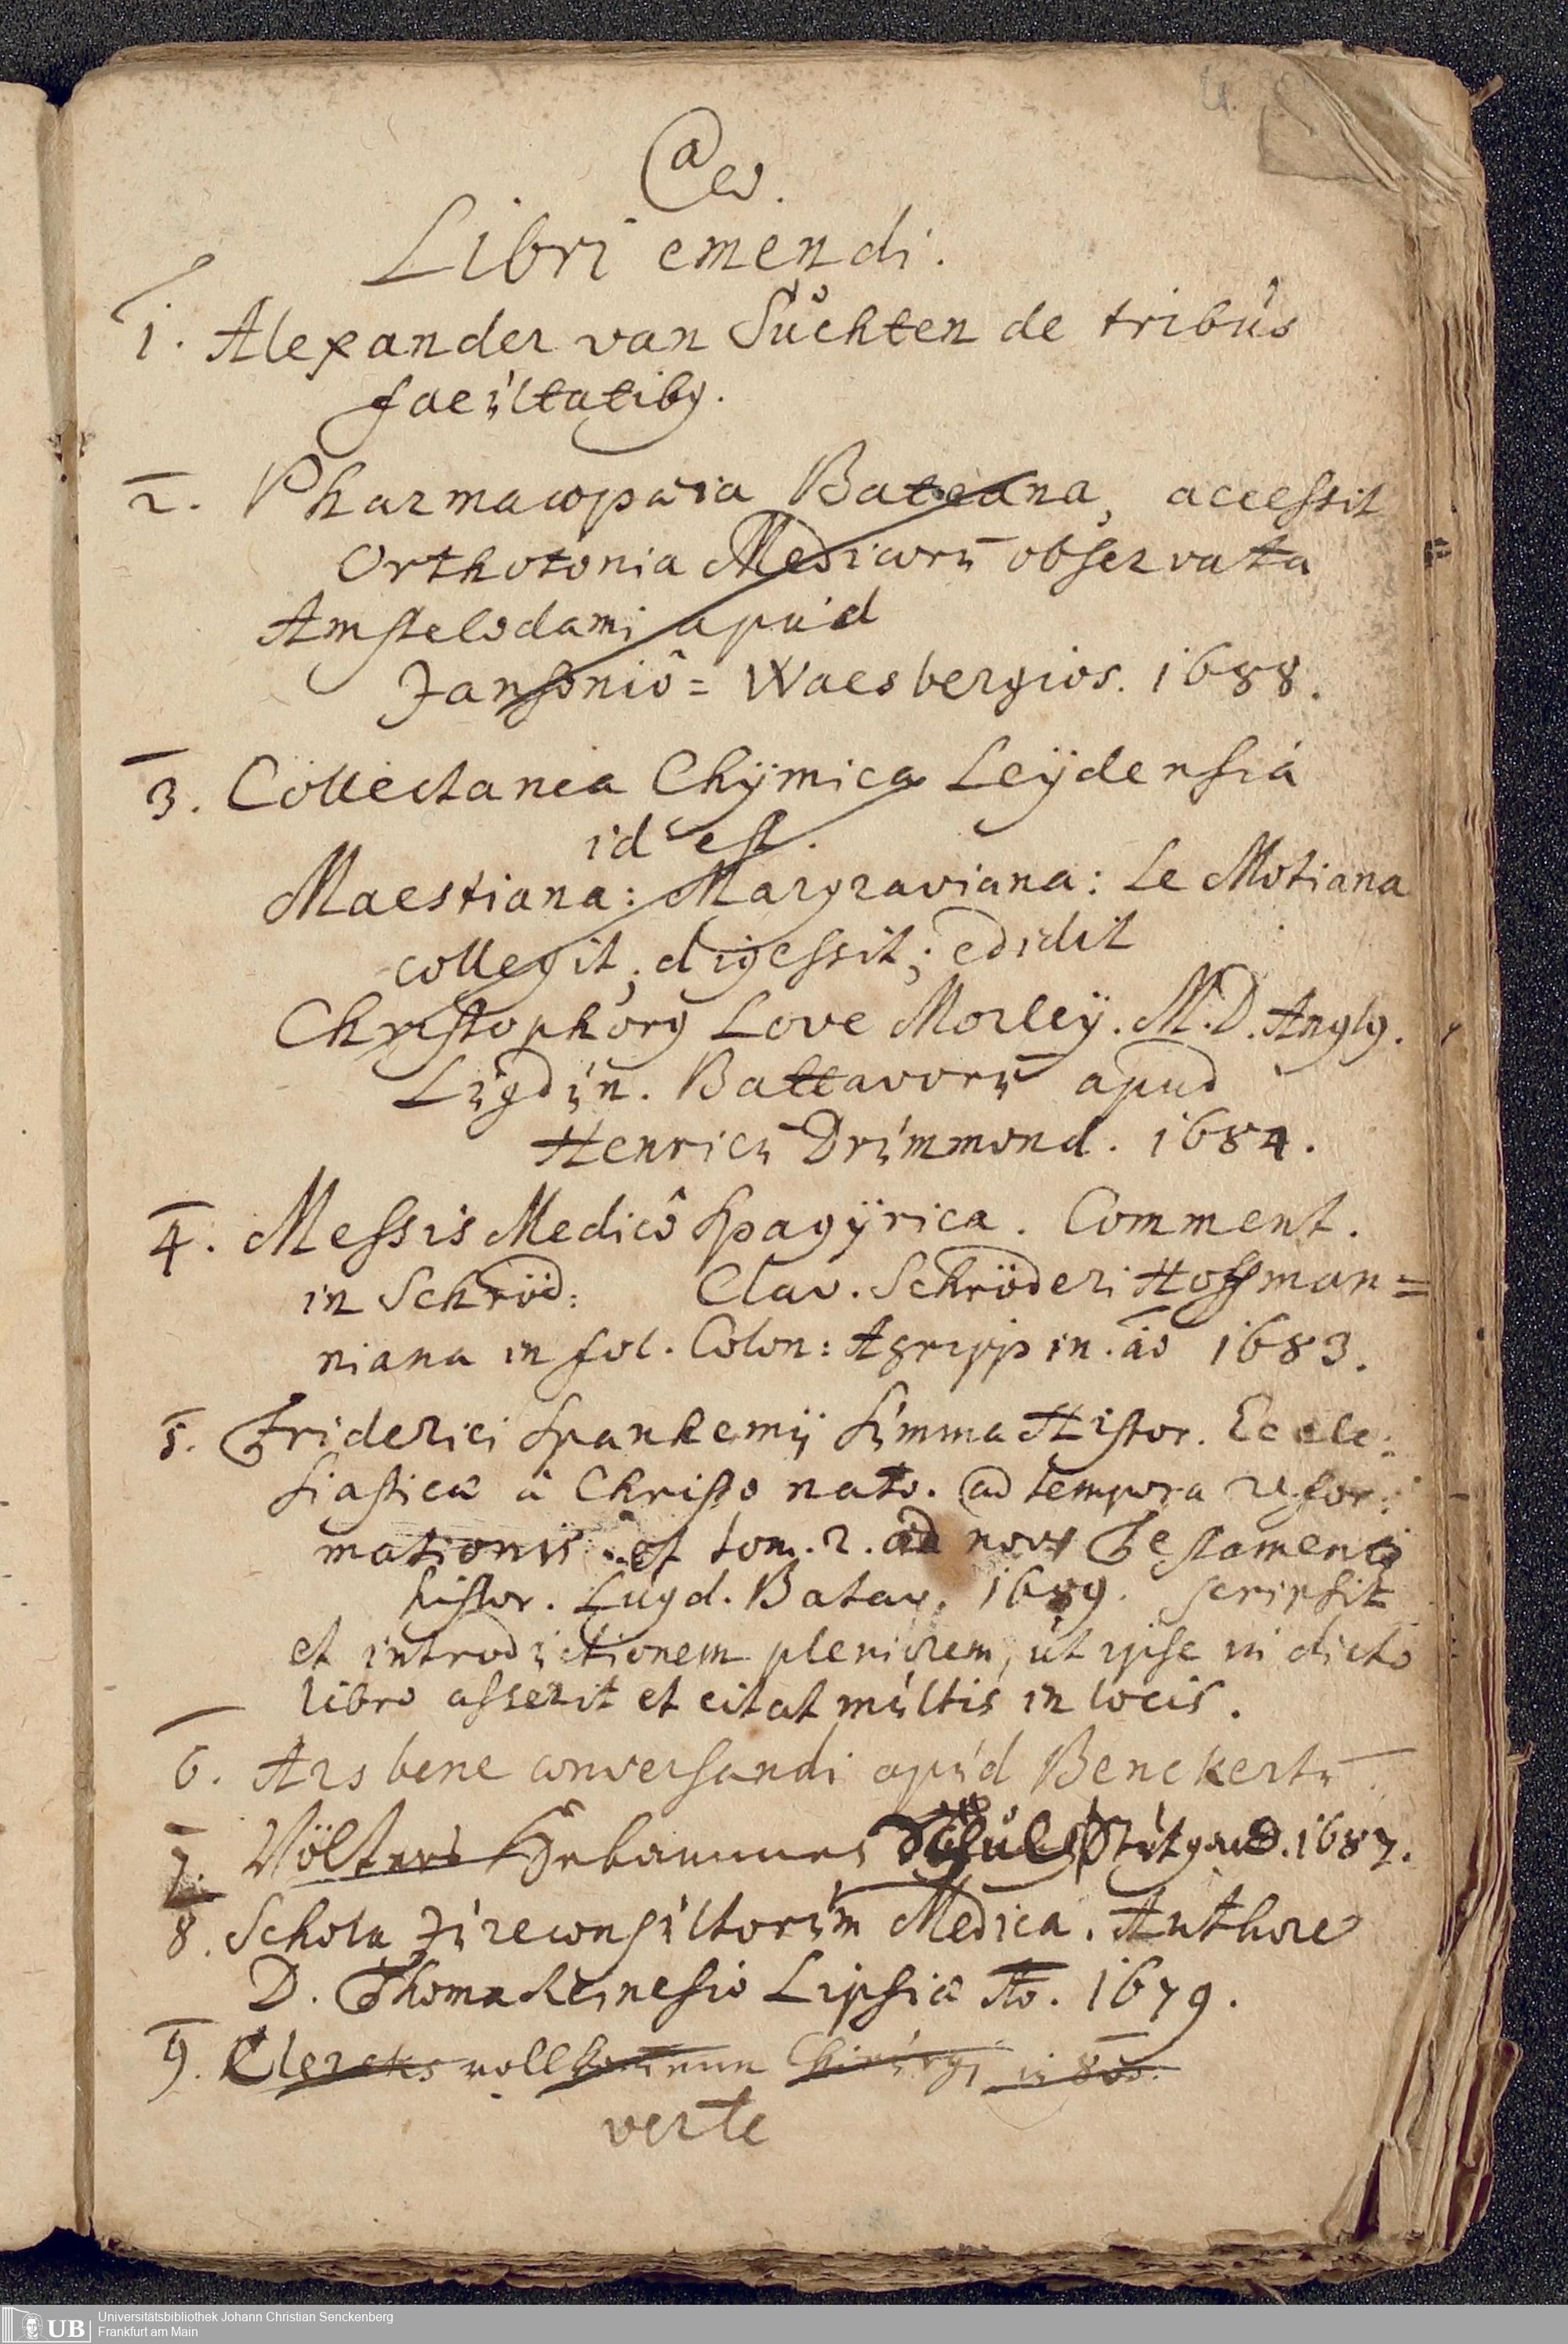 Libri emendi.
1. Alexander van Suchten de tribus
facultatibꝰ.
2. Pharmacopæia Bateana, accessit
Orthotonia Medicorū observata
Amstelodami apud
Janssoniô= Waesbergios. 1688.
3. Collectanea Chÿmica Leÿdensia
id est.
Maestiana: Margraviana: Le Motiana
collegit, digessit, edidit
Christophorꝰ Love Morleÿ. M.D. Anglꝰ.
Lugdun. Battavorū apud
Henricū Drummond. 1684.
4. Messis Medicô Spagÿrica. Comment.
in Schröd: Clav. Schröderi Hoffman=
niana in fol. Colon: Agrippin. aō 1683.
5. Friderici Spanhemij Summa Histor. Eccle:
siasticæ à Christo nato. ad tempora refor:
mationis et tom. 2. ad novi Testamenti
histor. Lugd. Batav. 1689. scripsit
et introductionem pleniorem, ut ipse in dicto
libro asserit et citat multis in locis.
6. Ars bene conversandi apud Benckertū.
7. Völters Hebammen Schul Stutgard. 1687.
8. Schola Jureconsultorum Medica. Authore
D. Thoma Reinesio Lipsiæ Ao. 1679.
9. Clercks vollkommene Chirurgi in 8vo.
verte
Universitätsbibliothek Johann Christian Senckenberg
Frankfurt am Main
UB